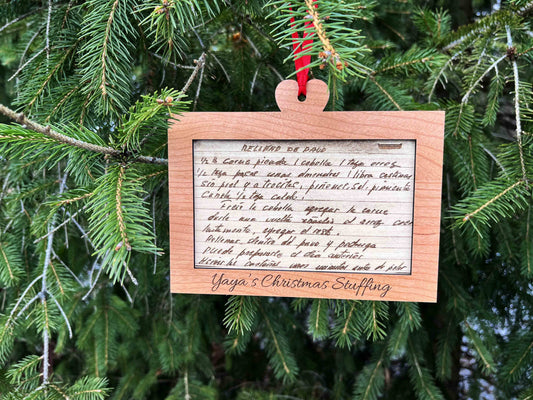 RELLENO DE PAVO
1/2 k Carne picada 1 cebolla 1 taza arroz
1/2 taza pasas unas almendras 1 libra castañas
sin piel y a trocitos, piñones, sal, pimienta
Canela 1/2 taza caldo.
Freir la cebolla agregar la carne
darle una vuelta añadir el arroz
agregar el resto.
Rellenar dentro del pavo y
Puede prepararse el dia anterior
Hervir las castañas unos minutos ante de pelar
Yaya's Christmas Stuffing